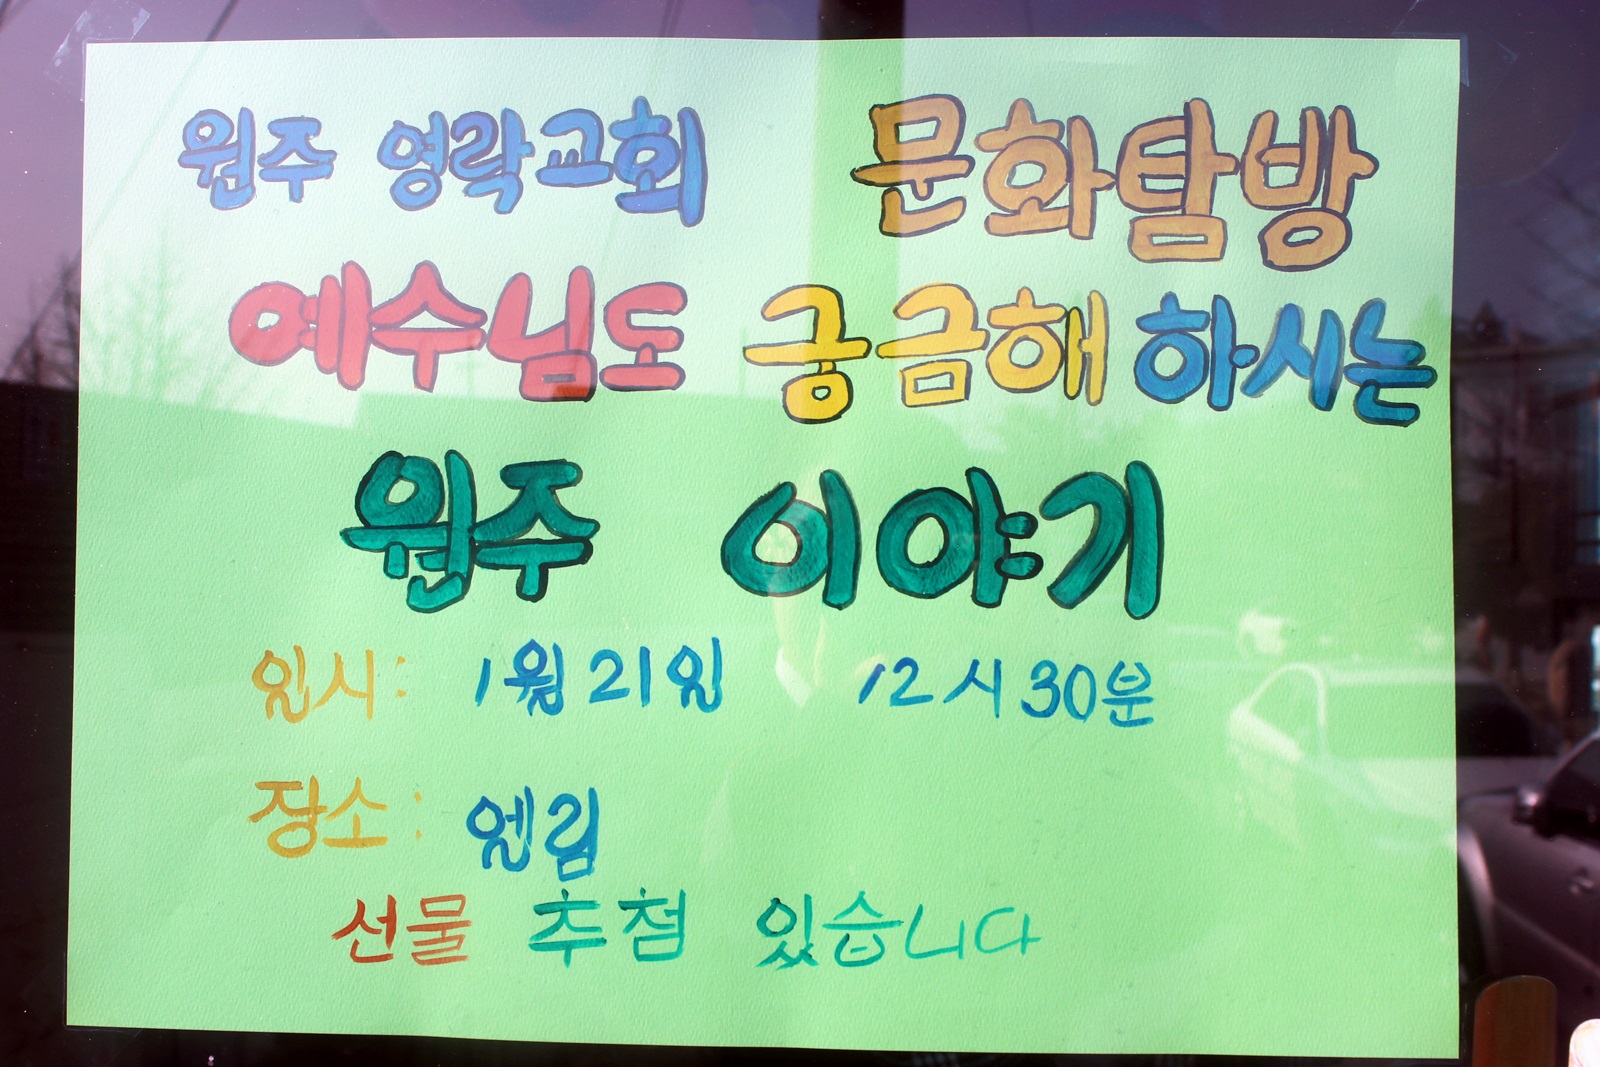 원주 영락교회 문화탐방
예수님도 궁금해 하시는
원주 이야기
일시: 1월 21일 12시 30분
장소: 엘림
선물 추첨 있습니다